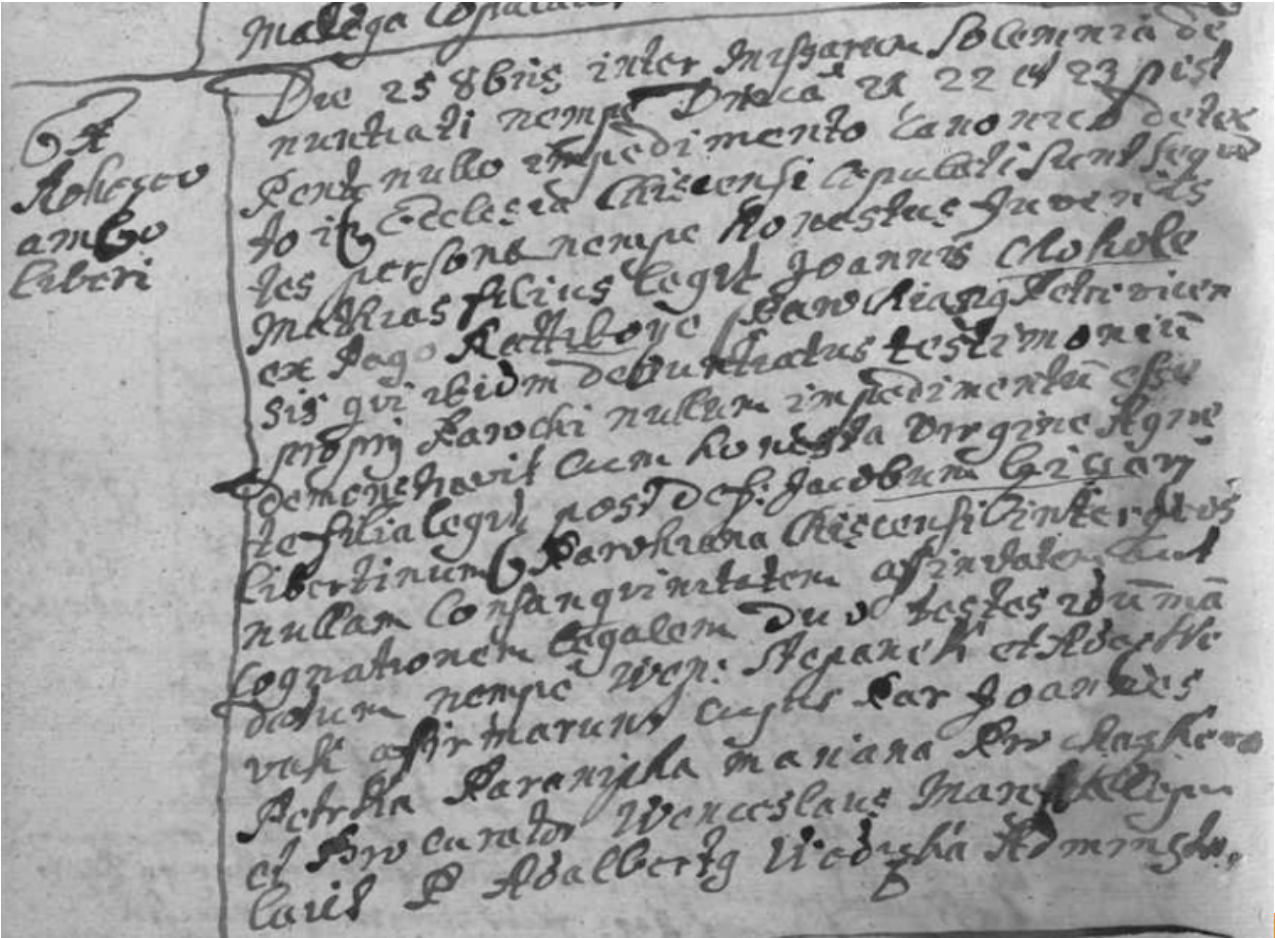 Matega Copulat
Die 25 8bris inter Missarum Solemnia de
nuntiati nempe Dnica 21 22 et 23 post
Pent: nullo impedimento canonico detec
to in Ecclesia Chiscensi copulati sunt sequen
tes personae nempe honestus Juvenis
Mathias filius legit Joannis Chohole
ex Pago Rattiboye Parochiang Petrovicen
sis qui ibidm denuntiatus testimoniū
proprij Parochi nullum impedimentū esse
demonstravit cum honesta Virgine Agne
te filia legit: post def: Jacobum
libertinum Parochiana Chiscensi inter quos
nullam Consanquinitatem afinitatem aut
Cognationem legalem duo testes
dorum nempe Wen: Stepanek et Adal
vak afirmarunt cujus Par Joannes
Petrka Paranipha Mariana Prochaskowa
et Procurator Wenceslaus Mares
lavit P Adalbertg Administr.
Ex
Rohozow
ambo
liberi